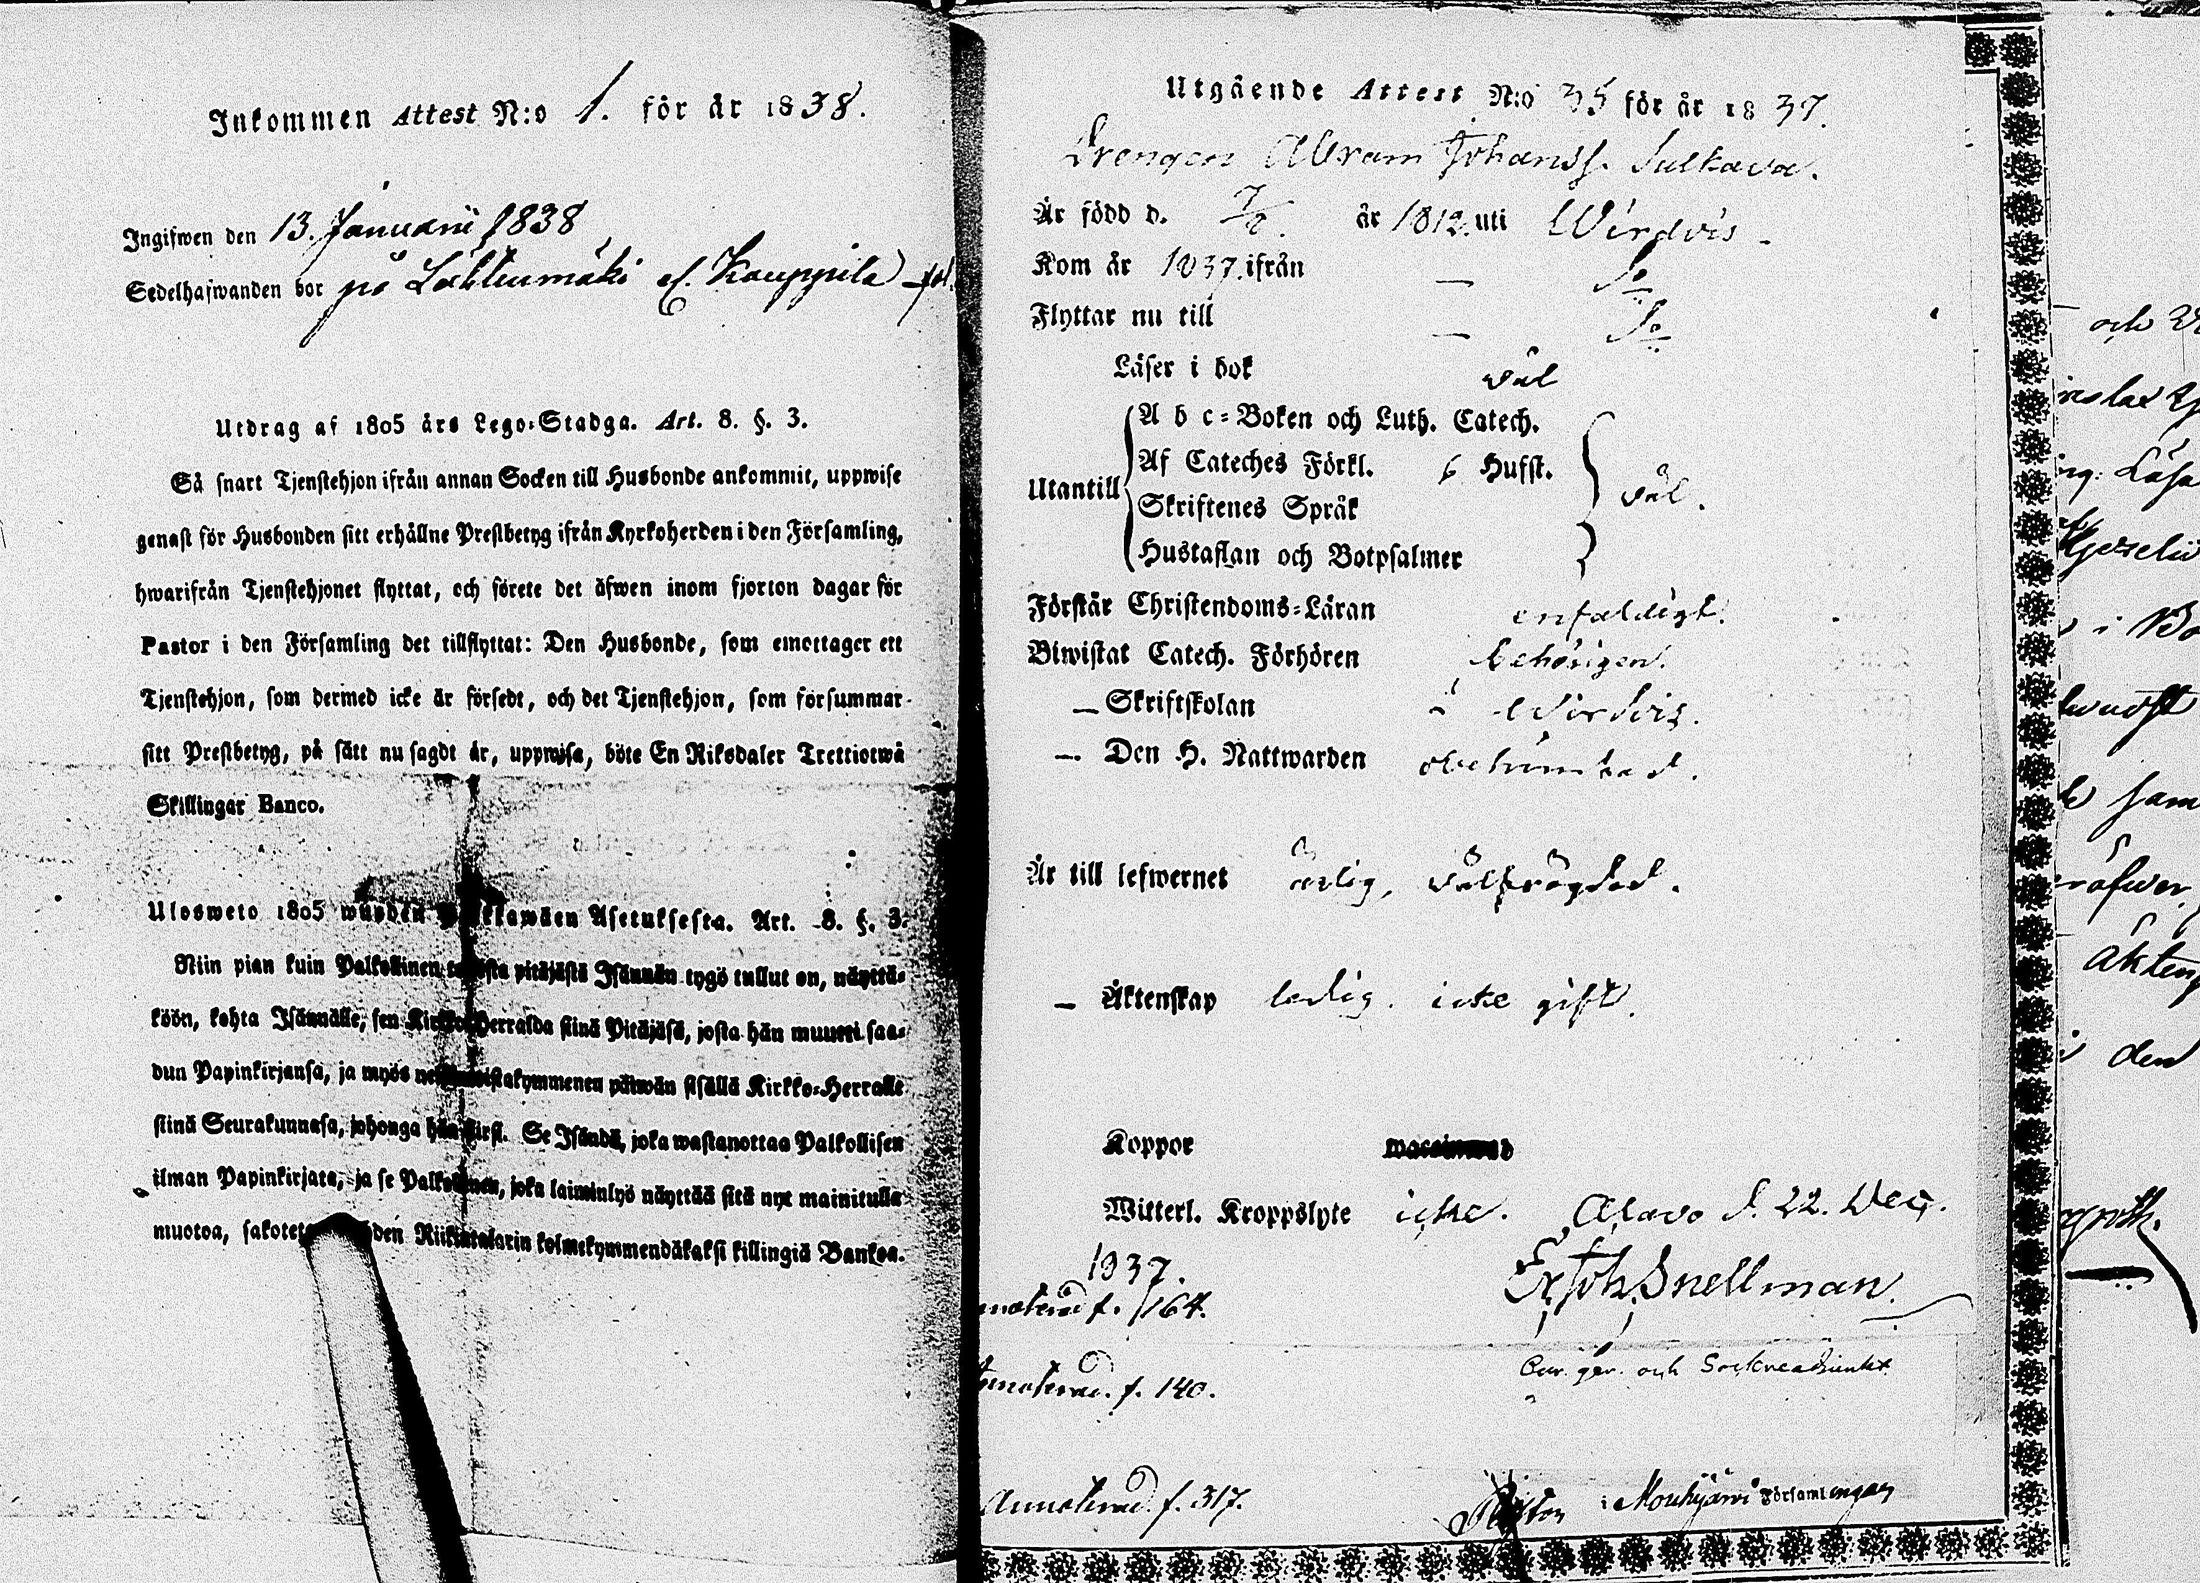 Inkommen Attest N:o 1. för år 1838.
Ingifwen den 13. Januarii 1838
Sedelhafwanden bor på Lähteenmäki el. Kauppila fol.
Utdrag af 1805 års Lego-Stadga. Art. 8. §. 3.
Så snart Tjenstehjon ifrån annan Socken till Husbonde ankommit, uppwise
genast för Husbonden sitt erhållne Prestbetyg ifrån Kyrkoherden i den Församling,
hwarifrån Tjenstehjonet flyttat, och förete det äfwen inom fjorton dagar för
Pastor i den Församling det tillflyttat: Den Husbonde, som emottager ett
Tjenstehjon, som dermed icke är försedt, och det Tjenstehjon, som försummar
sitt Prestbetyg, på sätt nu sagdt är, uppwisa, böte En Riksdaler Trettiotwå
Skillingar Banco.
Ulosweto 1805 wuoden Asetuksesta. Art. 8. §. 3.
Niin pian kuin Palkollinen pitäjästä Isännän tygö tullut on, näyttä-
köön, kohta Isännälle, sen Kirkko-Herralda siinä Pitäjäsä, josta hän muutti saa-
dun Papinkirjansa, ja myös päiwän sisällä Kirkko-Herralle
siinä Seurakunnasa, johonga hän siirsi. Se Isändä, joka wastanottaa Palkollisen
ilman Papinkirjata, ja se Palkollinen, joka laiminlyö näyttää sitä nyt mainitulla
muotoa, sakotet Riikintalarin kolmekymmendäkaksi killingiä Bankoa.
Utgående Attest N:o 35 för år 1837.
Drengen Abram Johanss. Sulkava.
Är född d. 7/2. år 1812. uti Wirdois
Kom år 1837. ifrån — Do
Flyttar nu till — Do
Läser i bok väl
Utantill
A b c-Boken och Luth. Catech.
Af Cateches Förkl. 6 Hufst.
Skriftenes Språk väl.
Hustaflan och Botpsalmer
Förstår Christendoms-Läran enfaldigt.
Biwistat Catech. Förhören behörigen.
— Skriftskolan i Wirdois.
— Den H. Nattwarden obehindrad.
Är till lefwernet ärlig, välfrägdad.
— Äktenskap ledig. icke gift.
Koppor
Witterl. Kroppslyte icke. Alavo d. 22. Dec.
1837.
Er. Joh. Snellman
f. 164.
Cur. ger. och Sockneadjunkt
f. 140.
Annoterad f. 317.
Pastor i Mouhijärvi Församlingen
och
Läsa
i
sam
Äkten
den